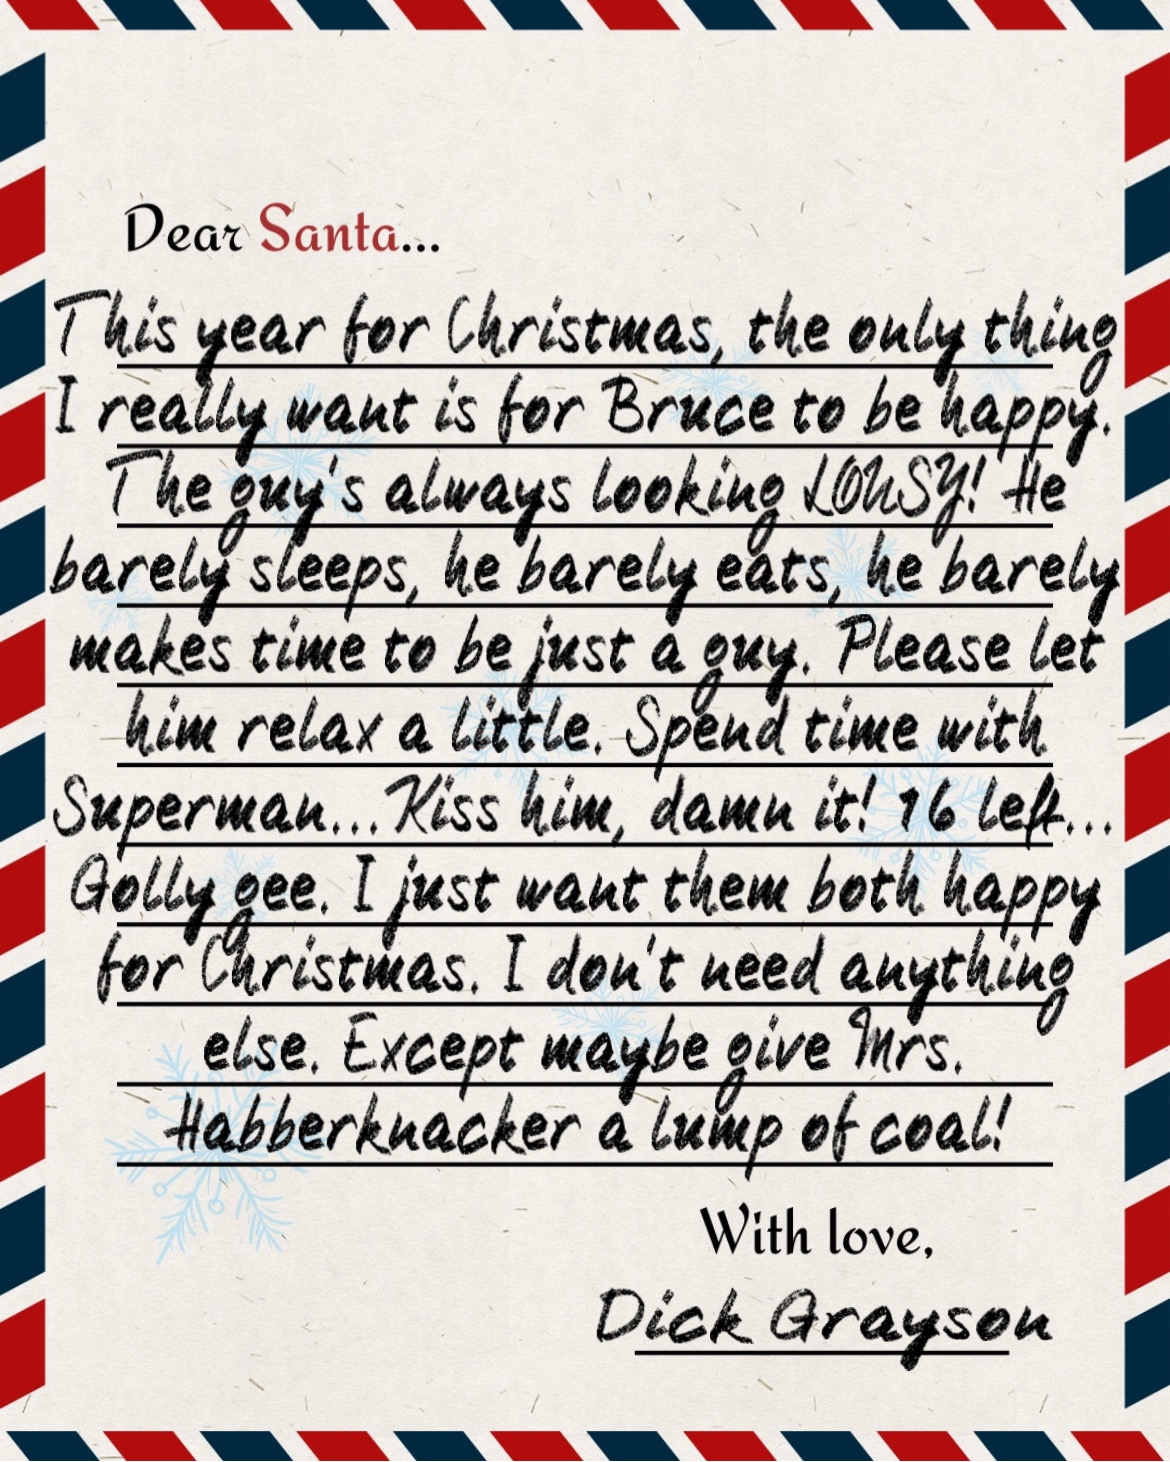 Dear Santa...
This year for Christmas, the only thing
I really want is for Bruce to be happy.
The guy's always looking LOUSY! He
barely sleeps, he barely eats, he barely
makes time to be just a guy. Please let
him relax a little. Spend time with
Superman...Kiss him, damn it! 16 left...
Golly gee. I just want them both happy
for Christmas. I don't need anything
else. Except maybe give Mrs.
Habberknacker a lump of coal!
With love,
Dick Grayson